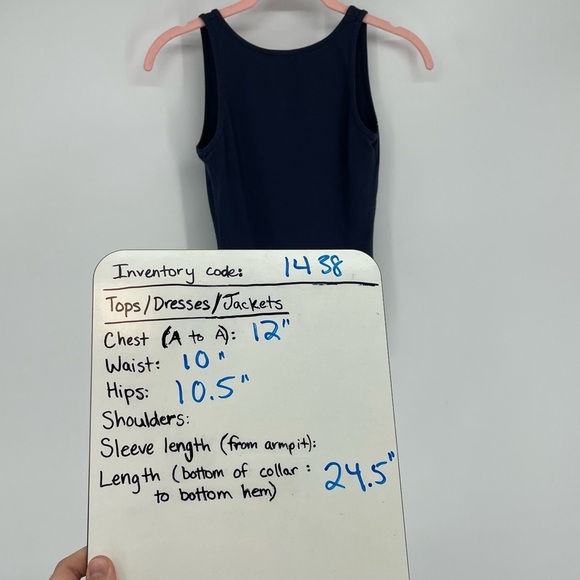 Inventory code: 1438
Tops/Dresses/Jackets
Chest (A to A): 12"
Waist: 10"
Hips: 10.5"
Shoulders:
Sleeve length (from armpit):
Length (bottom of collar : 24.5"
to bottom hem)